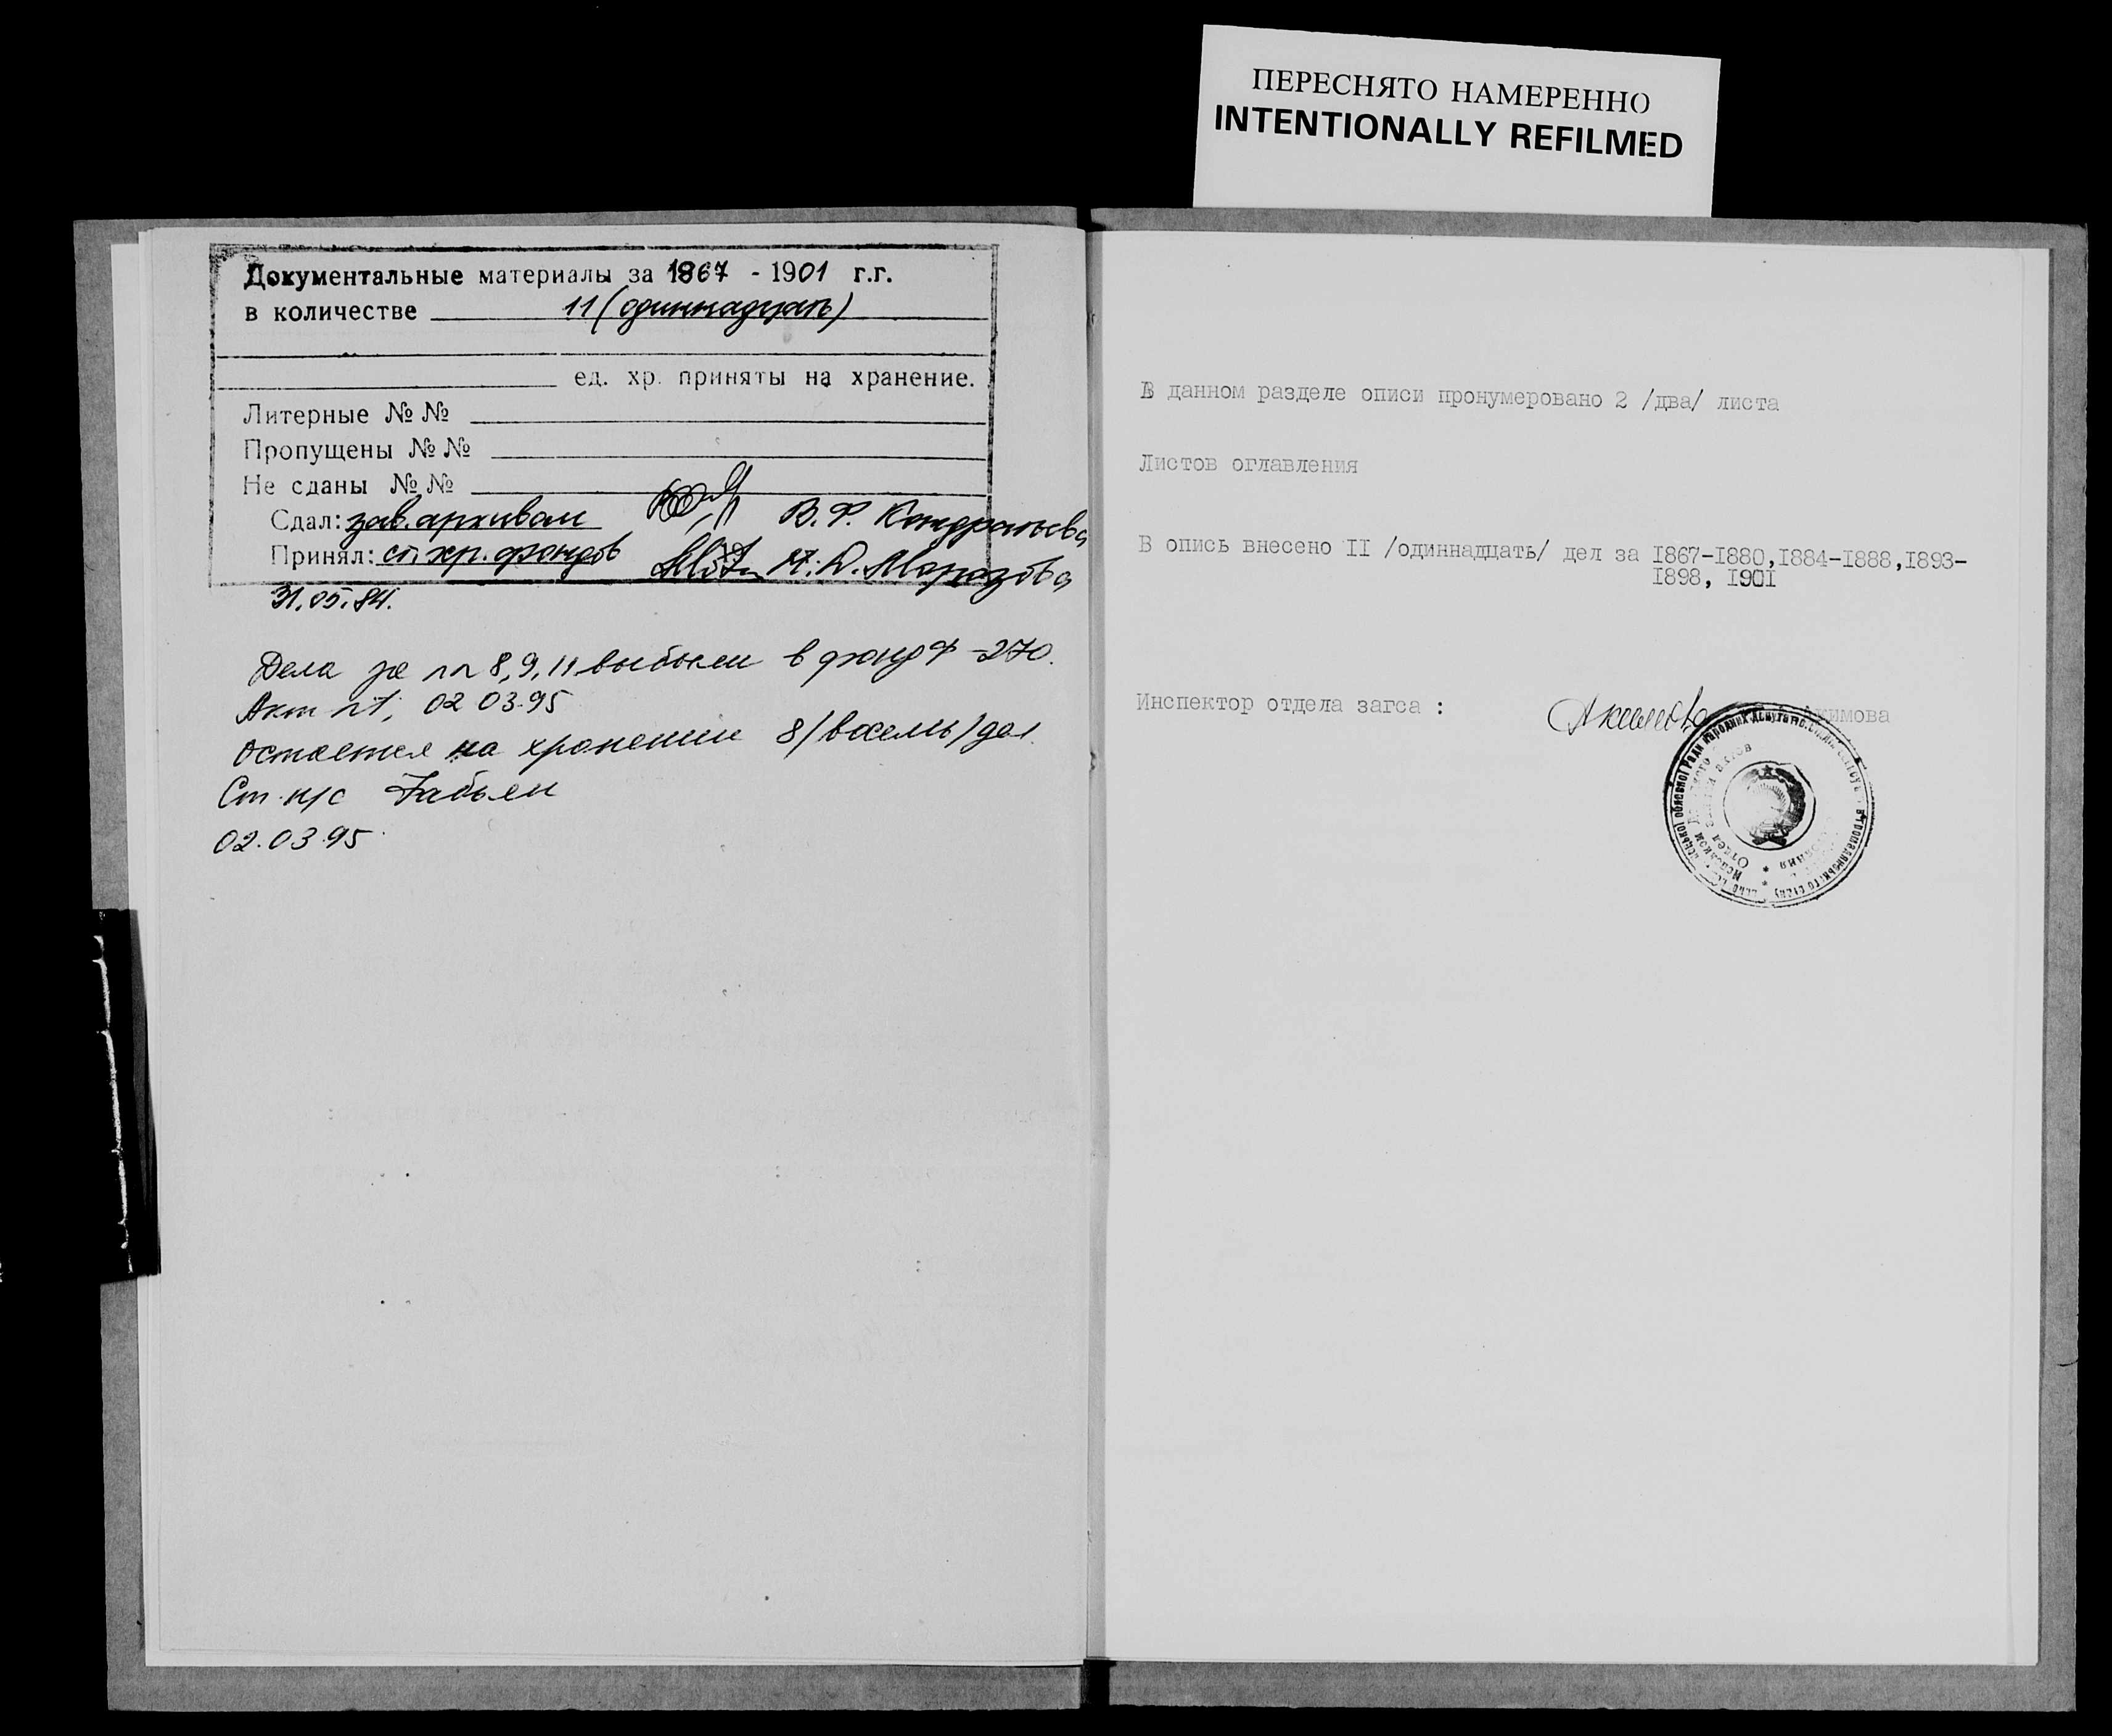 ПЕРЕСНЯТО НАМЕРЕННО
INTENTIONALLY REFILMED
Документальные материалы за 1867 - 1901 г.г.
в количестве 11 (одиннадцать)
ед. хр. приняты на хранение.
Литерные № №
Пропущены № №
Не сданы № №
Сдал: зав. архивом В. Ф. Кондратьева
Принял: ст. хр. фондов Морозова
31.05.84.
Дела за 8, 9, 11 выбыли в фонд Ф-270.
Акт 02 03.95
Остается на хранении 8 /восемь/ дел.
Ст. н/с
02.03.95.
В данном разделе описи пронумеровано 2 /два/ листа
Листов оглавления
В опись внесено II /одиннадцать/ дел за I867-I880,I884-I888,I893-
I898, I90I
Инспектор отдела загса : Акимова